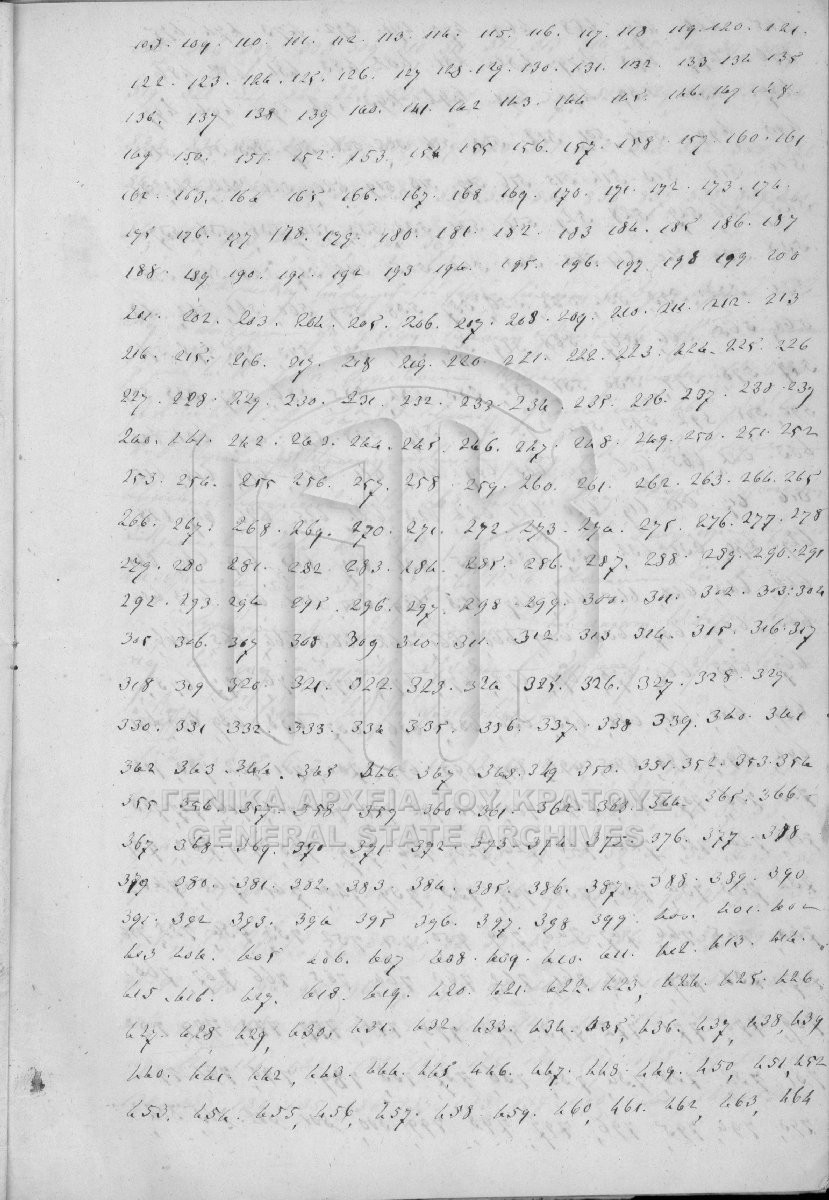 108. 109. 110. 111. 112. 113. 114. 115. 116. 117. 118 119. 120. 121.
122. 123. 124. 125. 126. 127 128. 129. 130. 131. 132. 133 134 135
136. 137 138 139 140. 141. 142 143. 144 145. 146. 147 148.
149 150. 151. 152. 153. 154 155 156. 157. 158. 159. 160. 161
162. 163. 164 165 166. 167. 168 169. 170. 171. 172. 173. 174.
175 176. 177 178. 179. 180. 181. 182. 183 184. 185 186. 187
188. 189 190. 191. 192 193 194. 195. 196. 197 198 199 200
201. 202. 203. 204. 205. 206. 207. 208. 209. 210. 211. 212. 213
214. 215. 216. 217. 218 219. 220. 221. 222. 223. 224. 225. 226
227. 228. 229. 230. 231. 232. 233. 234. 235. 236. 237. 238. 239
240. 241. 242. 243. 244. 245. 246. 247. 248. 249. 250. 251. 252
253. 254. 255 256. 257. 258. 259. 260. 261. 262. 263. 264. 265
266. 267. 268. 269. 270. 271. 272. 273. 274. 275. 276. 277. 278
279. 280 281. 282 283. 284. 285. 286. 287. 288. 289. 290. 291
292. 293. 294 295. 296. 297. 298. 299. 300. 301. 302. 303. 304
305 306. 307 308 309 310. 311. 312 313. 314. 315. 316. 317
318 319 320. 321. 322. 323. 324 325. 326. 327. 328. 329
330. 331 332. 333. 334 335. 336. 337. 338 339. 340. 341
342 343 344. 345 346. 347 348. 349 350. 351. 352. 353. 354
355 356. 357. 358 359 360. 361. 362. 363. 364. 365. 366
ΓΕΝΙΚΑ ΑΡΧΕΙΑ ΤΟΥ ΚΡΑΤΟΥΣ
GENERAL STATE ARCHIVES
367. 368. 369. 370 371 372. 373 374 375. 376. 377. 378
379 380. 381. 382. 383. 384. 385. 386. 387. 388. 389. 390
391. 392 393. 394 395 396. 397. 398 399. 400. 401. 402
403 404. 405 406. 407 408. 409. 410. 411. 412. 413. 414.
415 416. 417. 418. 419. 420. 421. 422. 423, 424. 425. 426
427. 428, 429, 430. 431. 432. 433. 434. 435, 436. 437, 438, 439
440. 441. 442, 443. 444. 445, 446. 447. 448. 449. 450, 451, 452
453. 454. 455, 456, 457. 458. 459. 460, 461. 462, 463, 464